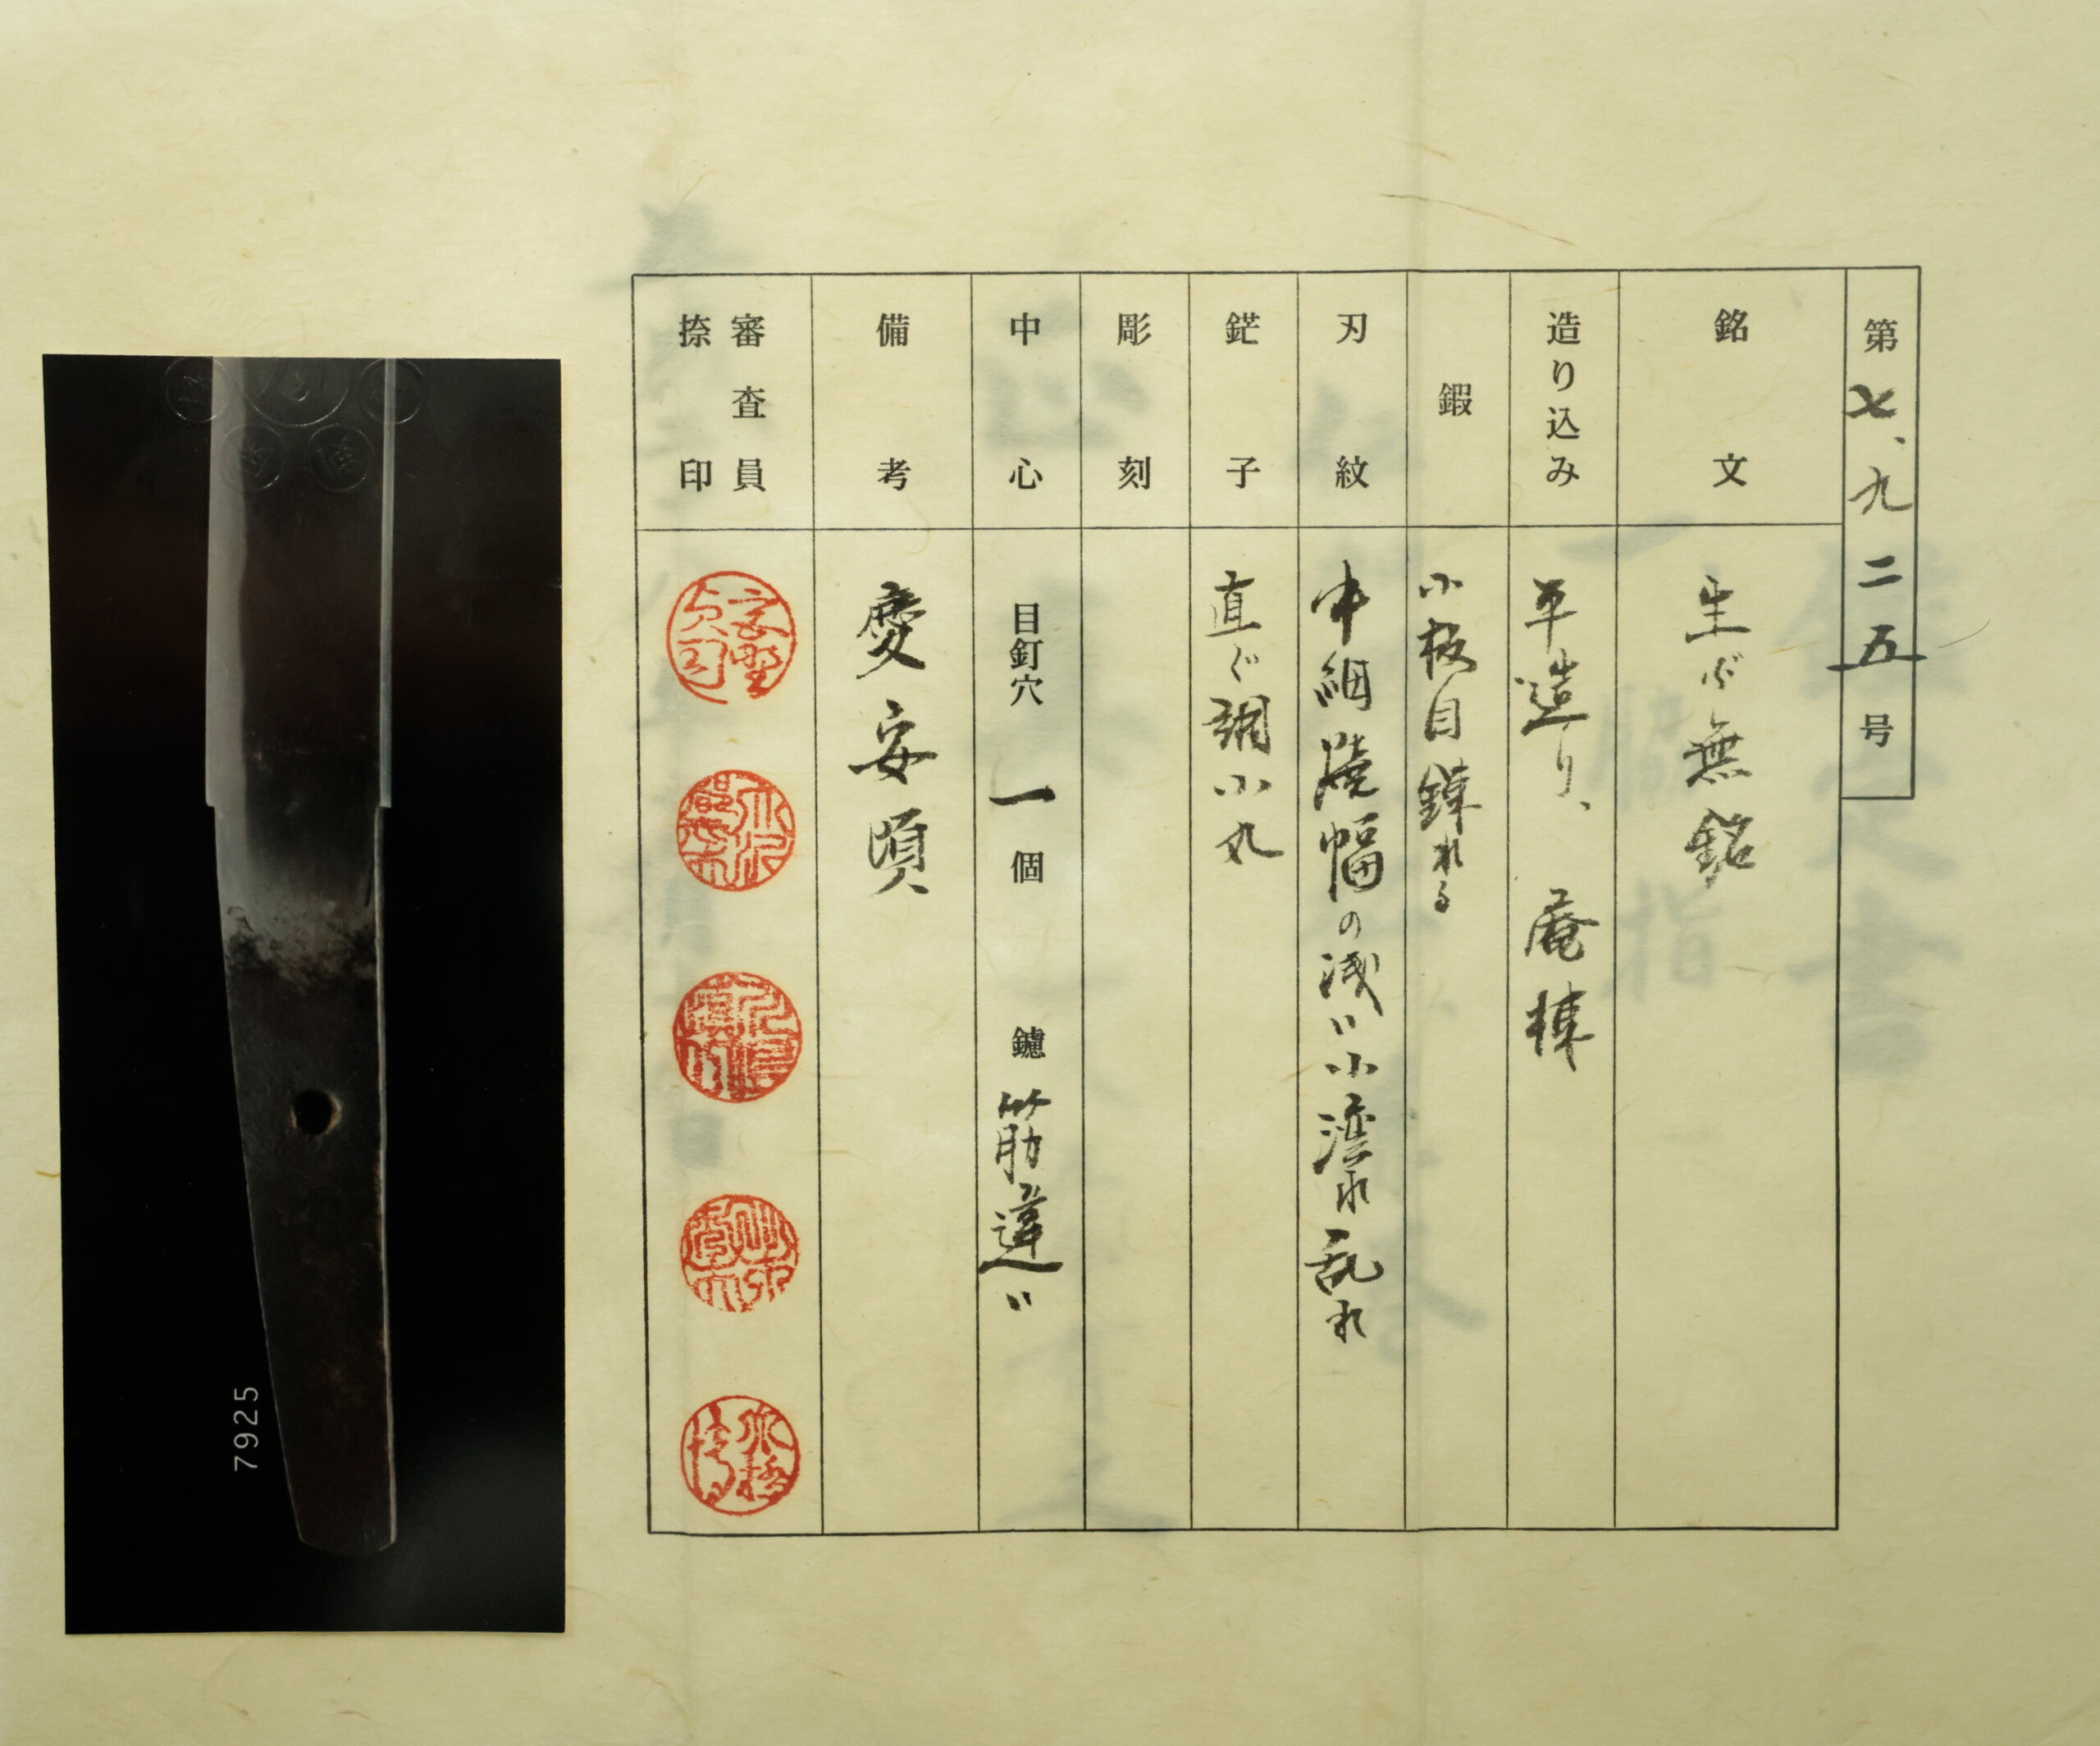 第七、九二五号
銘文
生ぶ無銘
造り込み
平造り、庵棟
鍜
小板目錬れる
刃紋
中細焼幅の浅い小湾れ乱れ
鋩子
直ぐ調小丸
彫刻
中心
目釘穴 一個 鑢 筋違い
備考
慶安頃
審査員
捺印
7925